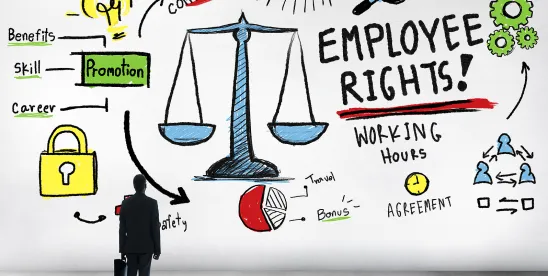 Benefits
Skill
Career
Promotion
EMPLOYEE
RIGHTS!
WORKING
HOURS
AGREEMENT
Travel
Bonus